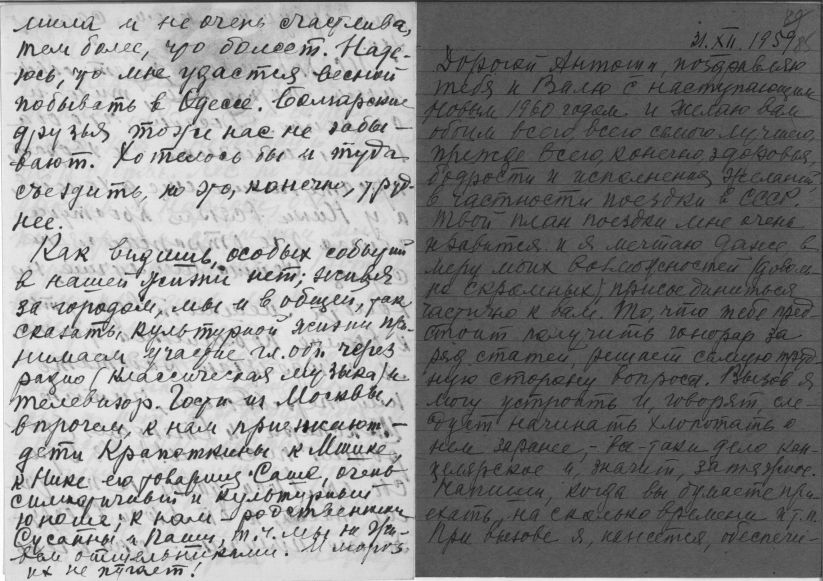 мила и не очень счастлива,
тем более, что болеет. Наде-
юсь, что мне удастся весной
побывать в Одессе. Болгарские
друзья тоже нас не забы-
вают. Хотелось бы и туда
съездить, но это, конечно, труд-
нее.
Как видишь, особых событий
в нашей жизни нет; живя
за городом, мы и в общей, так
сказать, культурной жизни при-
нимаем участие гл. обр. через
радио (классическая музыка) и
телевизор. Гости из Москвы,
впрочем, к нам приезжают. –
дети Крапоткины к Мишке,
к Нике его товарищ Саша, очень
симпатичный и культурный
юноша; к нам – родственники
Сусанны и Паши, т. ч. мы не жи-
вем отшельниками. И мороз
их не пугает!
31.XII.1959
Дорогой Антоша, поздравляю
тебя и Валю с наступающим
Новым 1960 годом и желаю вам
обоим всего, всего самого лучшего,
прежде всего, конечно, здоровья,
бодрости и исполнения желаний,
в частности поездки в СССР.
Твой план поездки мне очень
нравится и я мечтаю даже в
меру моих возможностей (доволь-
но скромных) присоединиться
частично к вам. То, что тебе пред-
стоит получить гонорар за
ряд статей, решает самую труд-
ную сторону вопроса. Вызов я
могу устроить и, говорят, сле-
дует начинать хлопотать о
нем заранее, – все-таки дело кан-
целярское и, значит, затяжное.
Напиши, когда вы думаете при-
ехать, на сколько времени и т.п.
При вызове я, кажется, обеспечи-